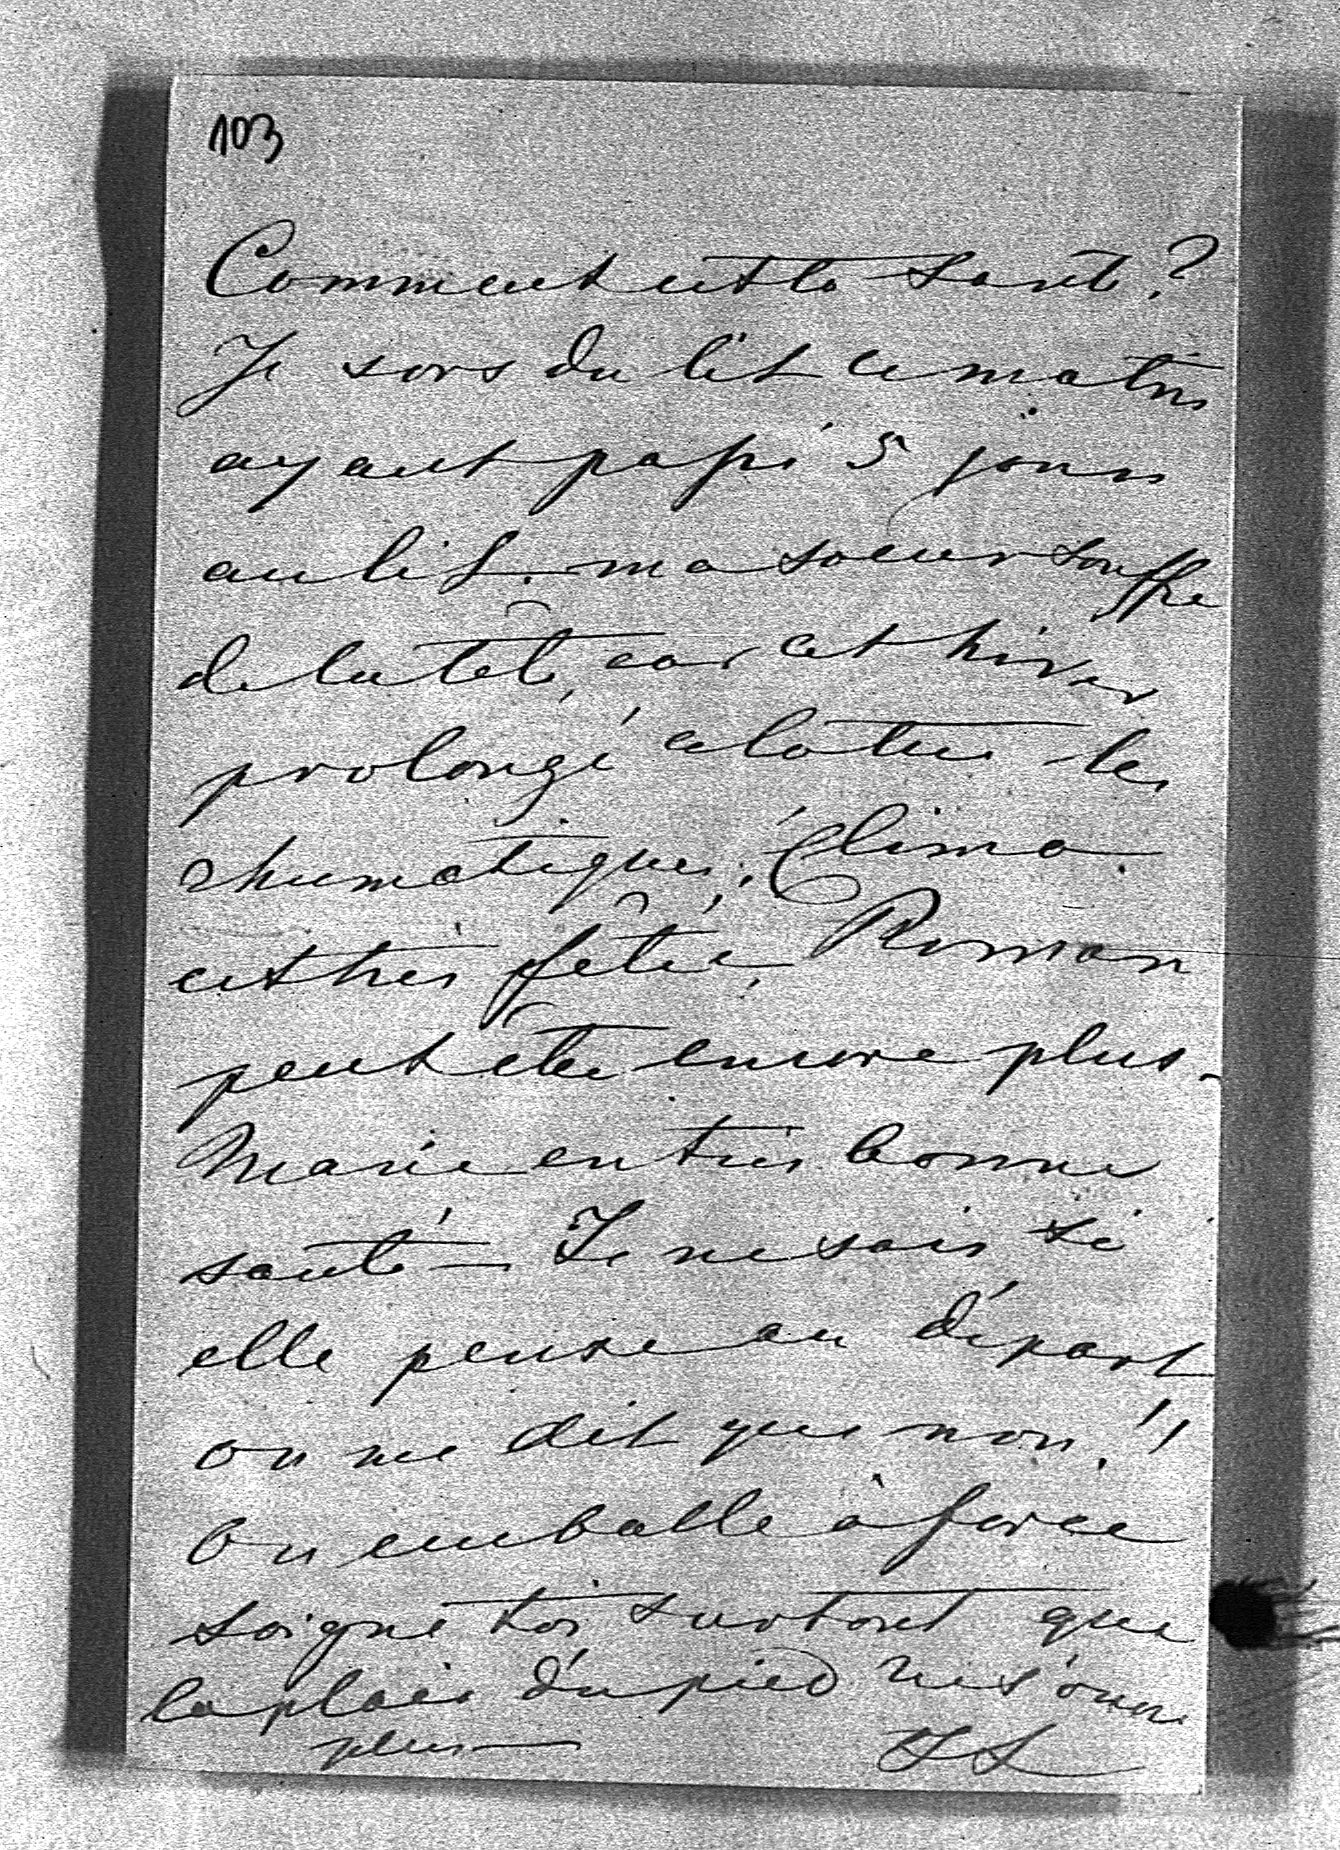 103
Comment est ta santé?
Je sors du lit ce matin
ayant passé 5 jours
au lit. ma soeur souffre
de la tête, car cet hiver
prolongé a les
rhumatiques. Elima
est très fêtée, Roman
peut être encore plus.
Marie en très bonne
santé — Je ne sais si
elle pense au départ
on me dit que non!!
On emballe à force
soigne toi surtout que
la plaie du pied ne s'ouvre
plus —